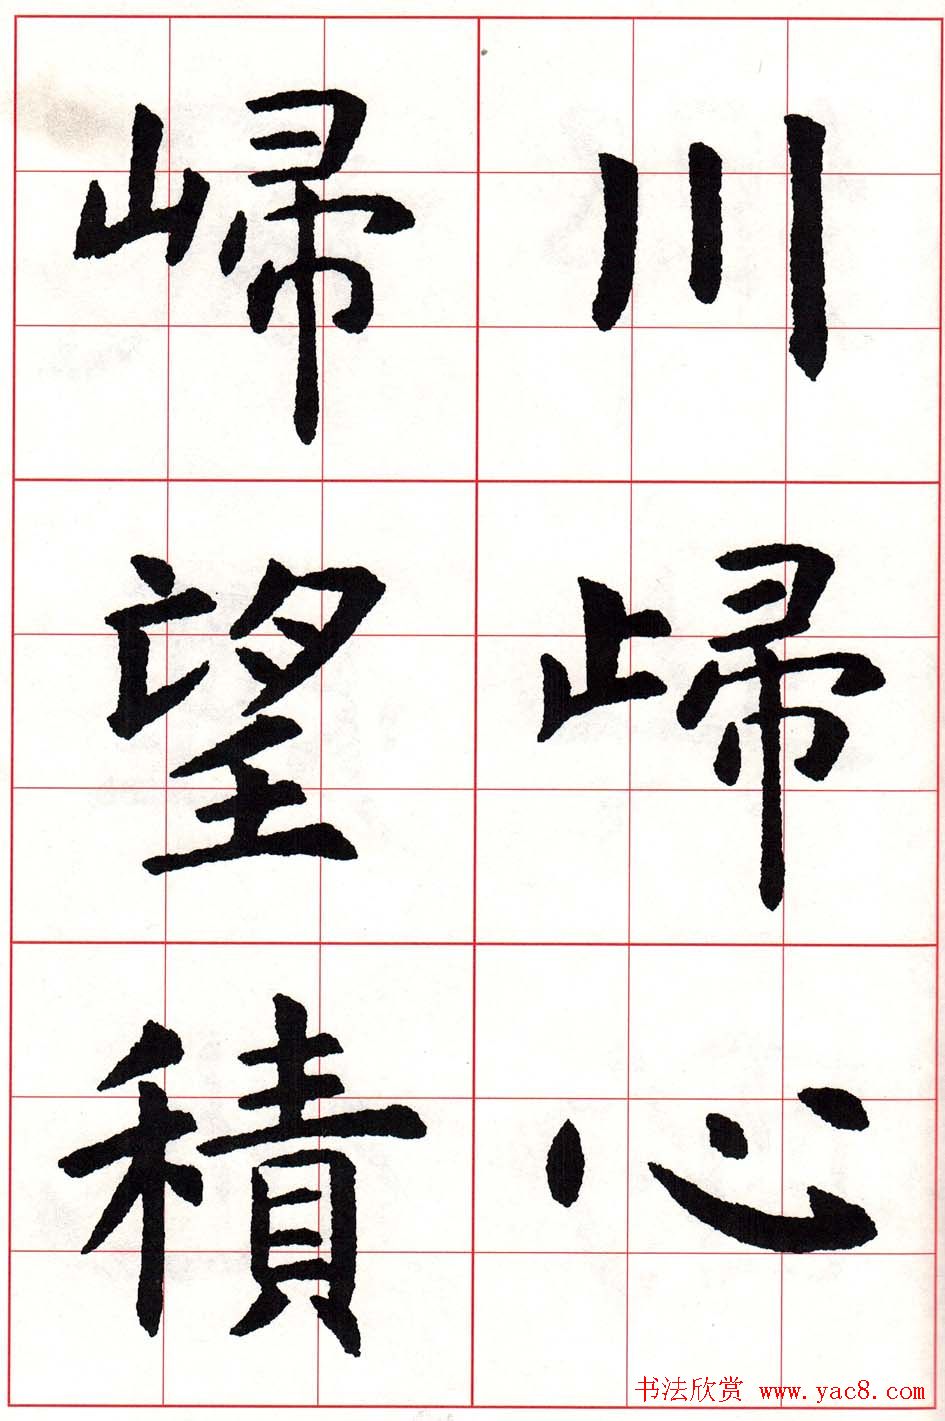 川㱕心
㱕望積
书法欣赏 www.yac8.com